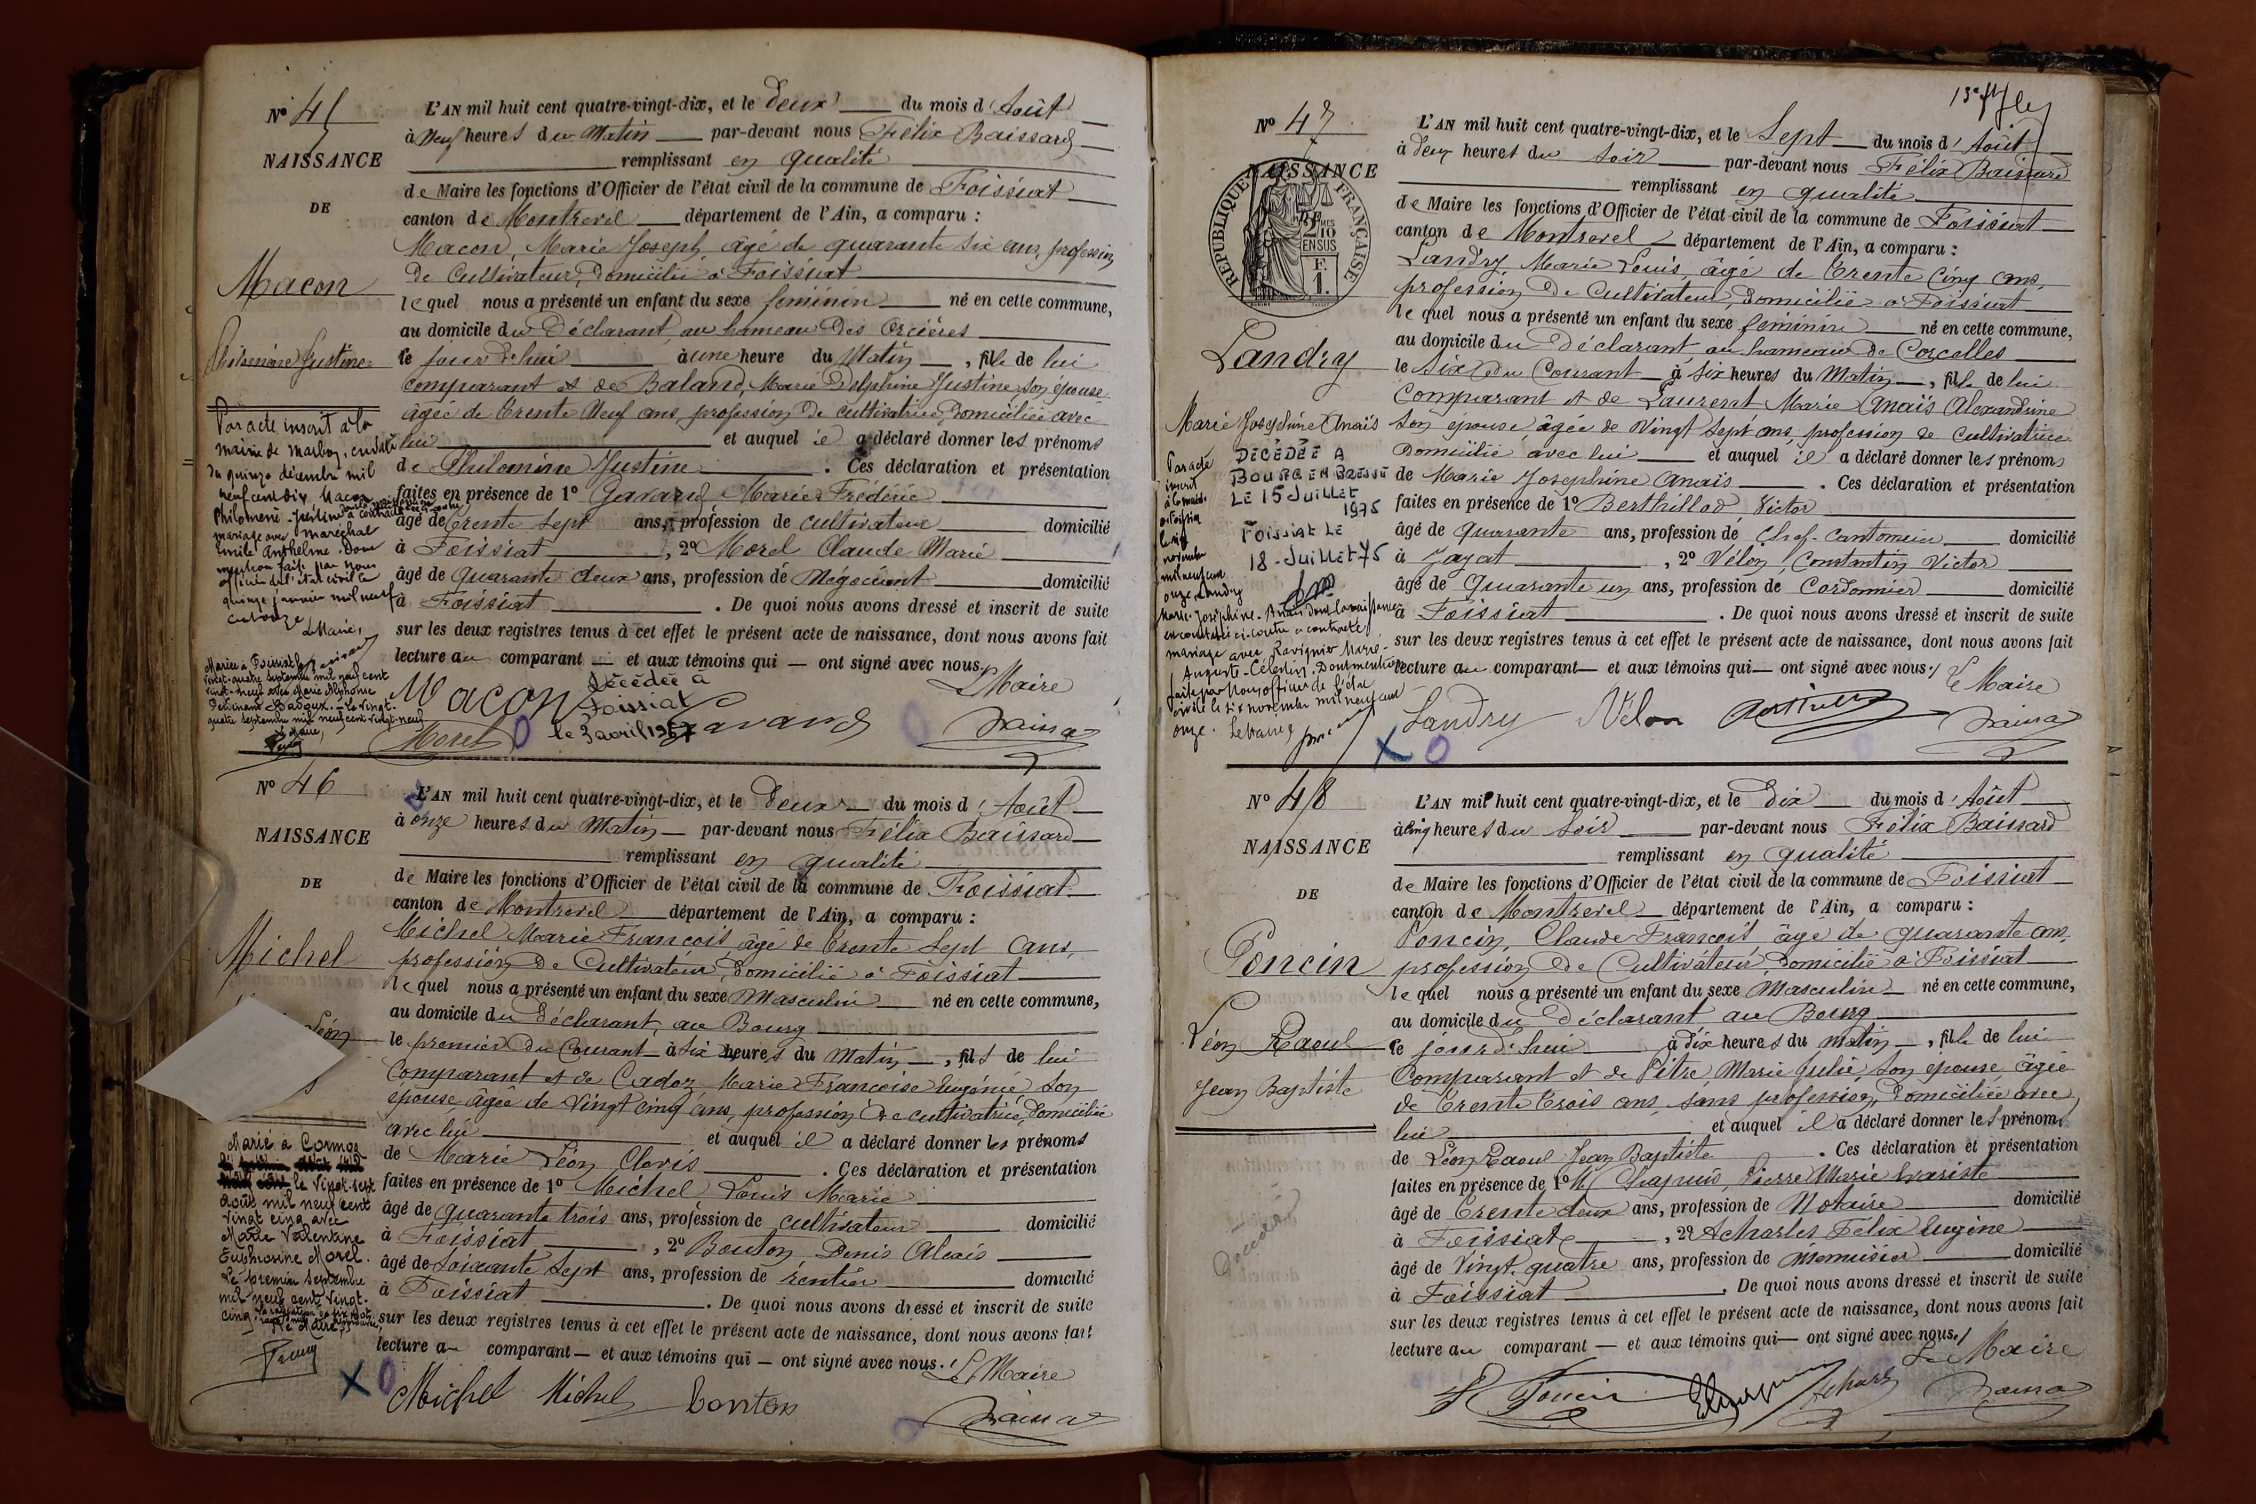 Nº 45
NAISSANCE
DE
Macon
Philomène Justine
L'AN mil huit cent quatre-vingt-dix, et le deux du mois d'Août
à neuf heures du Matin par-devant nous Félix Baissard
remplissant en qualité
de Maire les fonctions d'Officier de l'état civil de la commune de Foissiat
canton de Montrevel département de l'Ain, a comparu :
Macon, Marie Joseph, âgé de quarante six ans, profession
de Cultivateur, domicilié à Foissiat
lequel nous a présenté un enfant du sexe féminin né en cette commune,
au domicile du Déclarant, au hameau des Orcières
le jour d'hui à une heure du Matin, fille de lui
comparant et de Baland, Marie Delphine Justine, son épouse
âgée de trente neuf ans, profession de cultivatrice, domiciliée avec
lui et auquel il a déclaré donner les prénoms
de Philomène Justine. Ces déclaration et présentation
faites en présence de 1º Gavand Marie Frédéric
âgé de trente sept ans, profession de cultivateur domicilié
à Foissiat, 2º Morel Claude Marie
âgé de quarante deux ans, profession de Négociant domicilié
à Foissiat. De quoi nous avons dressé et inscrit de suite
sur les deux registres tenus à cet effet le présent acte de naissance, dont nous avons fait
lecture au comparant et aux témoins qui ont signé avec nous.
Le Maire
Macon Gavand
Morel
Décédée à
Foissiat
le 3 avril 1967
Par acte inscrit à la
mairie de Marboz, en date
du quinze décembre mil
neuf cent dix, Macon
Philomène-Justine a contracté
mariage avec Maréchal
Emile Anthelme. Dont
mention faite par nous
officier de l'état civil le
quinze janvier mil neuf
cent onze
Le Maire,
Mariée à Foissiat le
vingt-quatre septembre mil neuf cent
vingt-neuf avec Marie Alphonse
Ferdinand Badoux. Le vingt-
quatre septembre mil neuf cent vingt-neuf
Le Maire,
Nº 46
NAISSANCE
DE
Michel
Léon
L'AN mil huit cent quatre-vingt-dix, et le deux du mois d'Août
à onze heures du Matin par-devant nous Félix Baissard
remplissant en qualité
de Maire les fonctions d'Officier de l'état civil de la commune de Foissiat
canton de Montrevel département de l'Ain, a comparu :
Michel Marie François, âgé de trente sept ans,
profession de Cultivateur, domicilié à Foissiat
lequel nous a présenté un enfant du sexe Masculin né en cette commune,
au domicile du Déclarant, au Bourg
le premier du Courant à six heures du Matin, fils de lui
Comparant et de Cadoz Marie Françoise Eugénie, son
épouse âgée de vingt cinq ans, profession de cultivatrice, domiciliée
avec lui et auquel il a déclaré donner les prénoms
de Marie Léon Clovis. Ces déclaration et présentation
faites en présence de 1º Michel Louis Marie
âgé de quarante trois ans, profession de cultivateur domicilié
à Foissiat, 2º Bouton Denis Alexis
âgé de soixante sept ans, profession de rentier domicilié
à Foissiat. De quoi nous avons dressé et inscrit de suite
sur les deux registres tenus à cet effet le présent acte de naissance, dont nous avons fait
lecture au comparant et aux témoins qui ont signé avec nous.
Le Maire
Michel Michel Bouton
Marié à Cormoz
le vingt-sept
août mil neuf cent
vingt cinq avec
Marie Valentine
Euphrosine Morel.
Le premier septembre
mil neuf cent vingt-
cinq
Le Maire,
Nº 47
NAISSANCE
RÉPUBLIQUE FRANÇAISE
2/10 EN SUS
F.
1.
Landry
Marie Josephine Anaïs
L'AN mil huit cent quatre-vingt-dix, et le Sept du mois d'Août
à deux heures du soir par-devant nous Félix Baissard
remplissant en qualité
de Maire les fonctions d'Officier de l'état civil de la commune de Foissiat
canton de Montrevel département de l'Ain, a comparu :
Landry Marie Louis, âgé de trente cinq ans,
profession de Cultivateur, domicilié à Foissiat
lequel nous a présenté un enfant du sexe féminin né en cette commune,
au domicile du Déclarant au hameau de Corcelles
le Six du Courant à six heures du Matin, fille de lui
Comparant et de Laurent Marie Anaïs Alexandrine
son épouse âgée de vingt sept ans, profession de cultivatrice
domiciliée avec lui et auquel il a déclaré donner les prénoms
de Marie Josephine Anaïs. Ces déclaration et présentation
faites en présence de 1º Berthillod Victor
âgé de quarante ans, profession de Chef-Cantonnier domicilié
à Jayat, 2º Vélon, Constantin Victor
âgé de quarante un ans, profession de Cordonnier domicilié
à Foissiat. De quoi nous avons dressé et inscrit de suite
sur les deux registres tenus à cet effet le présent acte de naissance, dont nous avons fait
lecture au comparant et aux témoins qui ont signé avec nous.
Le Maire
Landry Vélon
DÉCÉDÉE A
BOURG EN BRESSE
LE 15 JUILLET
1975
FOISSIAT LE
18-JUILLET 75
Par acte
inscrit
à la mairie
de Foissiat
le six
novembre
mil neuf cent
onze Landry
Marie-Joséphine-Anaïs dont la naissance
est constatée ci-contre a contracté
mariage avec Ravignier Marie-
Auguste-Célestin. Dont mention
faite par Nous officier de l'état
civil le six novembre mil neuf cent
onze. Le Maire
Nº 48
NAISSANCE
DE
Poncin
Léon Raoul
Jean Baptiste
Décédé
L'AN mil huit cent quatre-vingt-dix, et le Dix du mois d'Août
à cinq heures du soir par-devant nous Félix Baissard
remplissant en qualité
de Maire les fonctions d'Officier de l'état civil de la commune de Foissiat
canton de Montrevel département de l'Ain, a comparu :
Poncin, Claude François, âgé de quarante ans,
profession de Cultivateur, domicilié à Foissiat
lequel nous a présenté un enfant du sexe Masculin né en cette commune,
au domicile du Déclarant au Bourg
le jour d'hui à dix heures du matin, fils de lui
Comparant et de Pitre, Marie Julie, son épouse âgée
de trente trois ans, sans profession, domiciliée avec
lui et auquel il a déclaré donner les prénoms
de Léon Raoul Jean Baptiste. Ces déclaration et présentation
faites en présence de 1º M. Chapuis, Pierre Marie Evariste
âgé de trente deux ans, profession de Notaire domicilié
à Foissiat, 2º Acharles Félix Eugène
âgé de vingt quatre ans, profession de Menuisier domicilié
à Foissiat. De quoi nous avons dressé et inscrit de suite
sur les deux registres tenus à cet effet le présent acte de naissance, dont nous avons fait
lecture au comparant et aux témoins qui ont signé avec nous.
Le Maire
Poncin